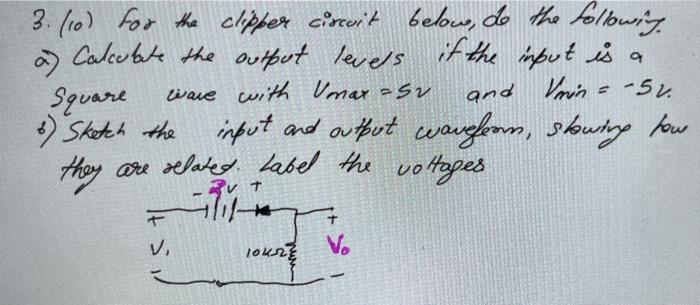 3. (10) For the clipper circuit below, do the following.
a) Calculate the output levels if the input is a
Square wave with Vmax = 5v and Vmin = -5v.
b) Sketch the input and output waveform, showing how
they are related. Label the voltages
- 2v +
+ +
Vi 10kΩ Vo
- -